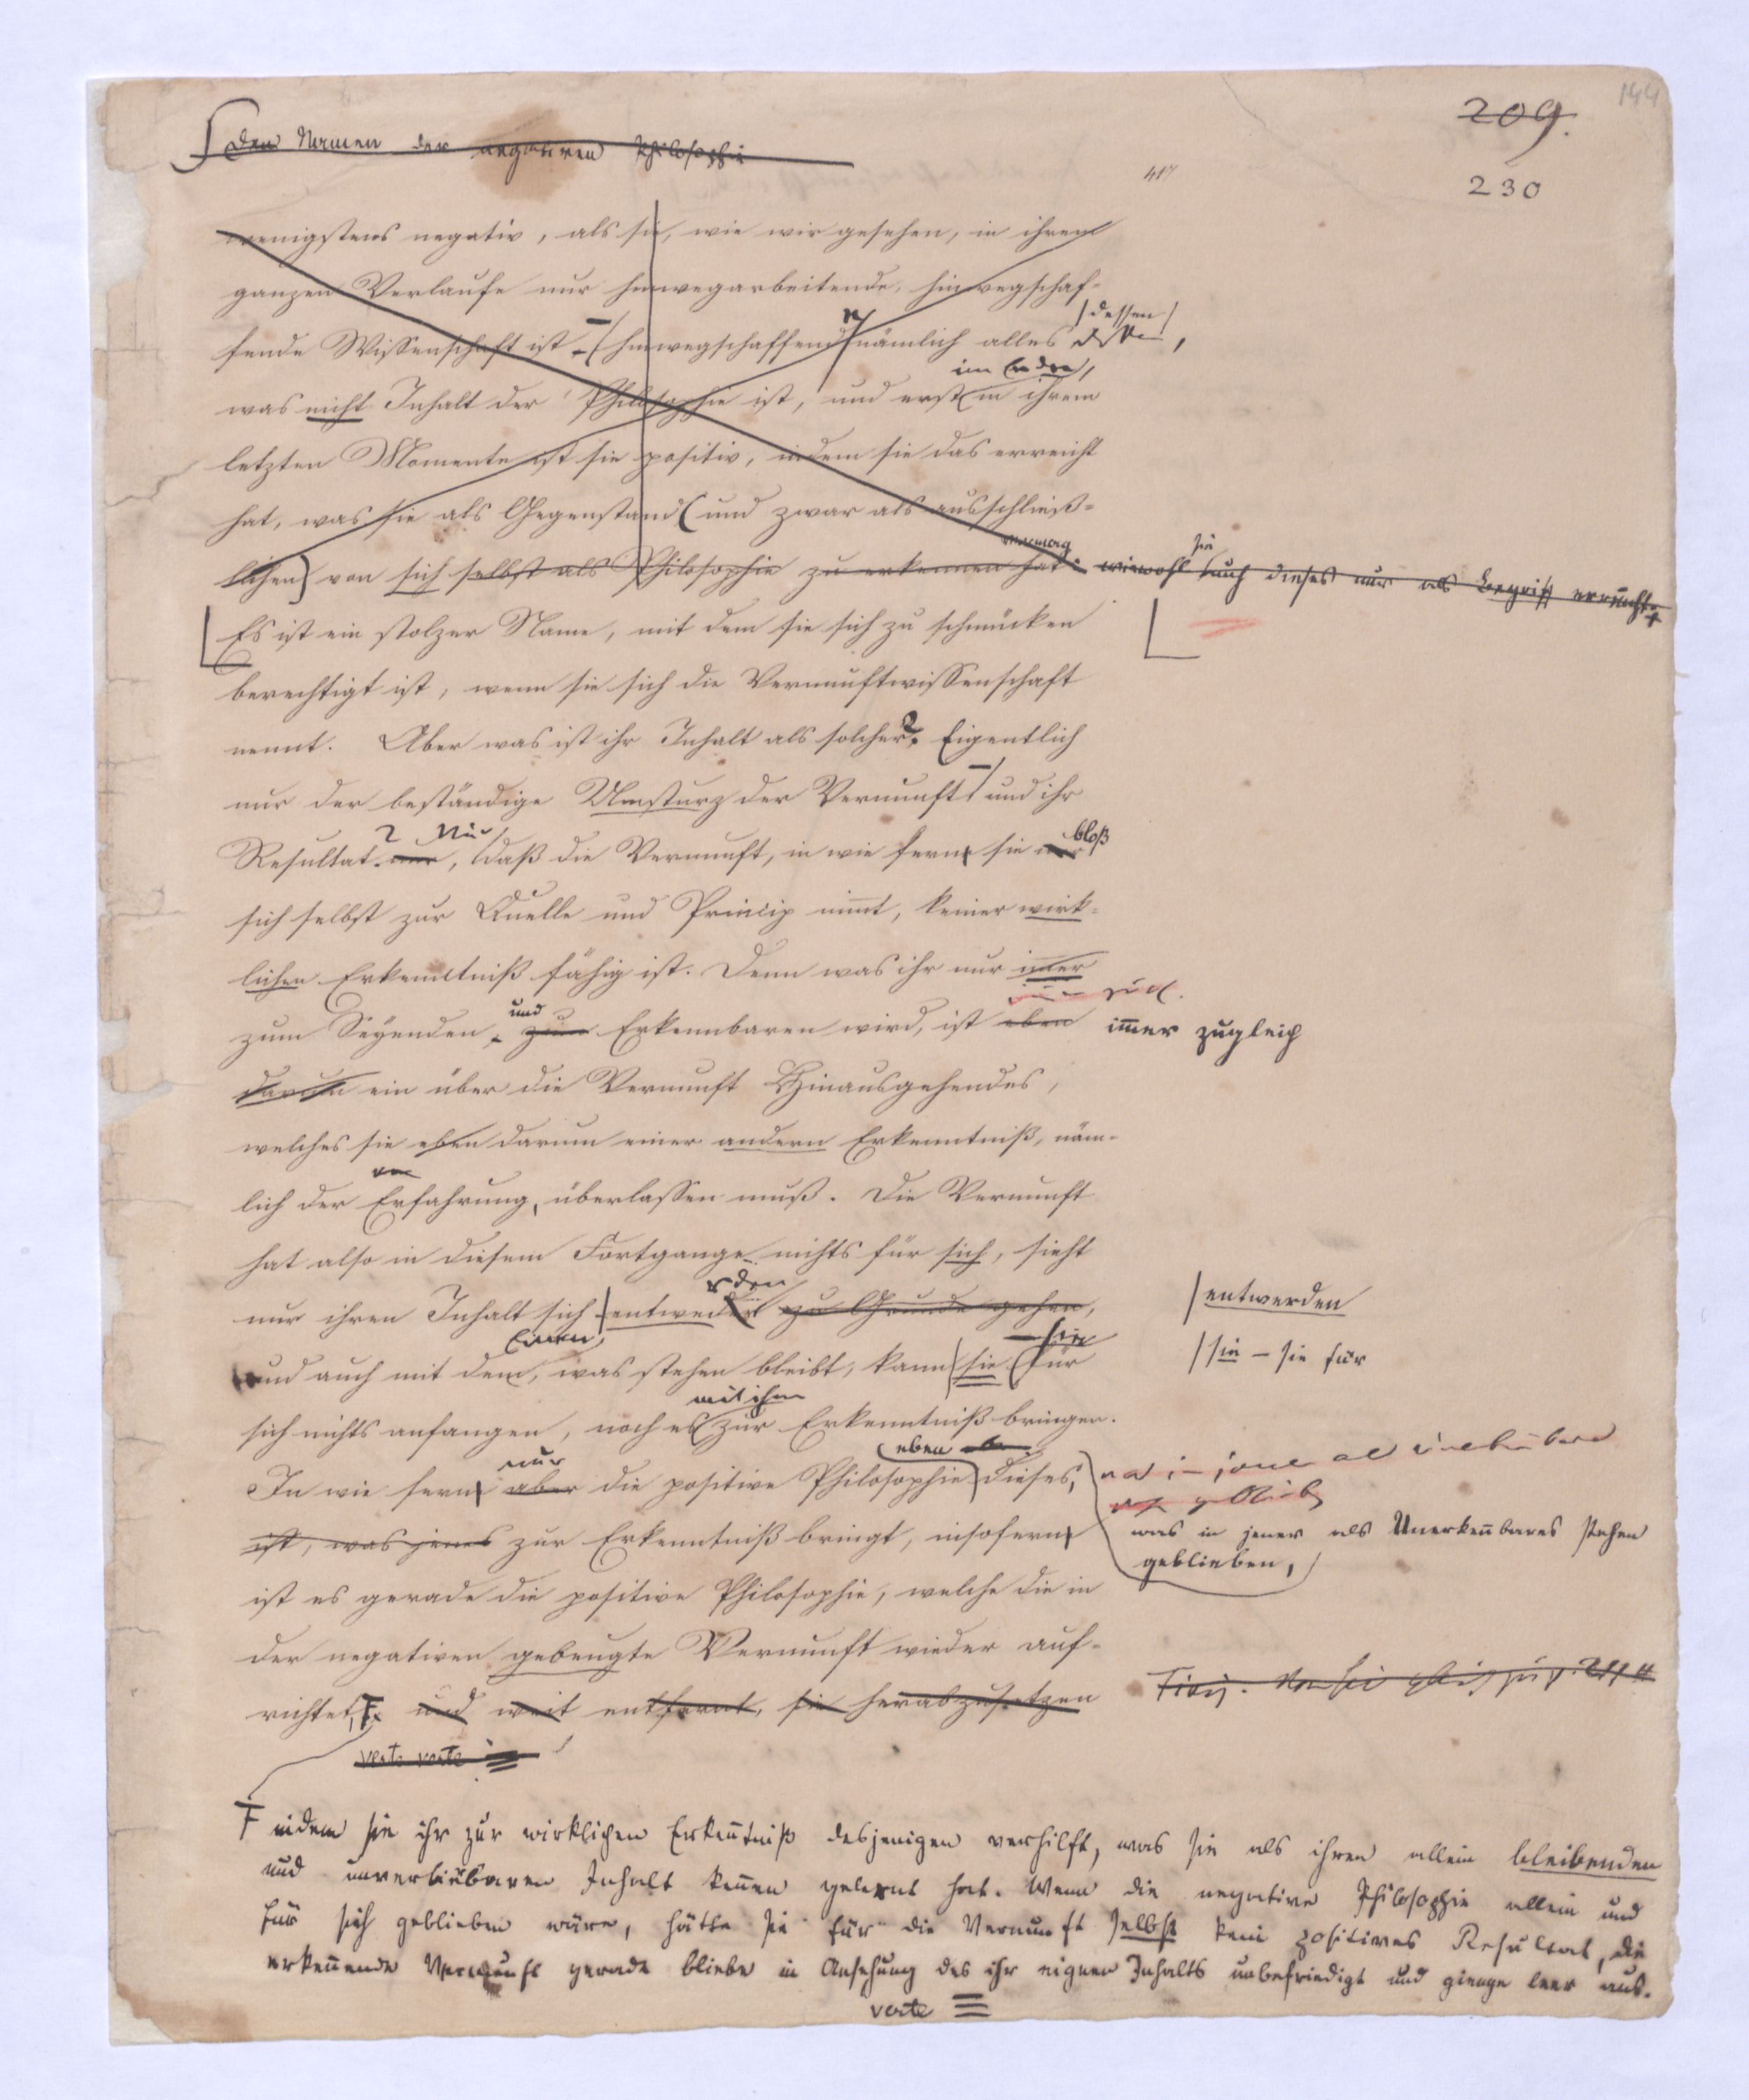 144
209.
230
den Namen der negativen Philosophie
417
wenigstens negativ, als sie, wie wir gesehen, in ihrem
ganzen Verlaufe nur hinwegarbeitende, hinwegschaf-
fende Wissenschaft ist – (hinwegschaffend nämlich alles dessen,
im Ende,
was nicht Inhalt der Philosophie ist, und erst in ihrem
letzten Momente ist sie positiv, indem sie das erreicht
hat, was sie als Gegenstand (und zwar als ausschließ-
lichen) von sich selbst als Philosophie zu erkennen hat: wiewohl sie auch dieses nur als Begriff erreicht
Es ist ein stolzer Name, mit dem sie sich zu schmücken
berechtigt ist, wenn sie sich die Vernunftwissenschaft
nennt. Aber was ist ihr Inhalt als solcher? Eigentlich
nur der beständige Umsturz der Vernunft – und ihr
? Nur bloß
Resultat nur, daß die Vernunft, in wie fern sie nur
sich selbst zur Quelle und Princip nimt, keiner wirk-
lichen Erkenntniß fähig ist. Denn was ihr nur imer
und
zum Seyenden, zum Erkennbaren wird, ist eben imer zugleich
darum ein über die Vernunft Hinausgehendes,
welches sie eben darum einer andern Erkenntniß, näm-
lich der Erfahrung, überlassen muß. Die Vernunft
hat also in diesem Fortgange nichts für sich, sieht
rden
nur ihren Inhalt sich entweder zu Grunde gehen, entwerden
Einen
und auch mit dem, was stehen bleibt, kann sie für sie – sie für
mit ihm
sich nichts anfangen, noch es zur Erkenntniß bringen.
nur eben
In wie fern aber die positive Philosophie dieses,
ist, was jenes zur Erkenntniß bringt, insofern was in jener als Unerkenbares stehen
geblieben,
ist es gerade die positive Philosophie, welche die in
der negativen gebeugte Vernunft wieder auf-
richtet, und weit entfernt, sie herabzusetzen
verte verte
F indem sie ihr zur wirklichen Erkentniß desjenigen verhilft, was sie als ihren allein bleibenden
und unverlierbaren Inhalt kenen gelernt hat. Wenn die negative Philosophie allein und
für sich geblieben wäre, hätte sie für die Vernunft selbst kein positives Resultat, die
erkenende Vernunft gerade bliebe in Ansehung des ihr eignen Inhalts unbefriedigt und gienge leer aus.
verte